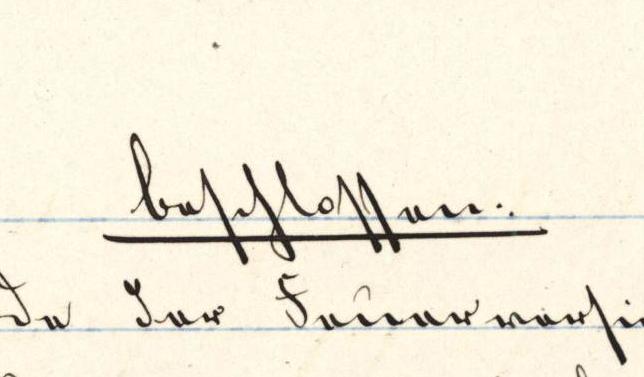 beschlossen:
der Feuerversi